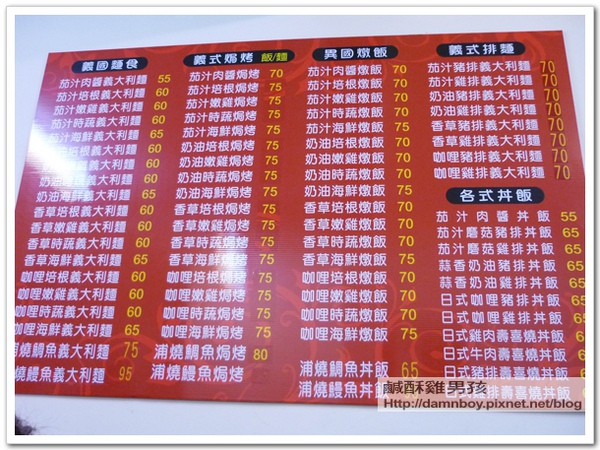 義國麵食
茄汁肉醬義大利麵 55
茄汁培根義大利麵 60
茄汁嫩雞義大利麵 60
茄汁時蔬義大利麵 60
茄汁海鮮義大利麵 65
奶油培根義大利麵 60
奶油嫩雞義大利麵 60
奶油時蔬義大利麵 60
奶油海鮮義大利麵 65
香草培根義大利麵 60
香草嫩雞義大利麵 60
香草時蔬義大利麵 60
香草海鮮義大利麵 65
咖哩培根義大利麵 60
咖哩嫩雞義大利麵 60
咖哩時蔬義大利麵 60
咖哩海鮮義大利麵 65
浦燒鯛魚義大利麵 75
浦燒鰻魚義大利麵 95
義式焗烤 飯/麵
茄汁肉醬焗烤 70
茄汁培根焗烤 75
茄汁嫩雞焗烤 75
茄汁時蔬焗烤 75
茄汁海鮮焗烤 75
奶油培根焗烤 75
奶油嫩雞焗烤 75
奶油時蔬焗烤 75
奶油海鮮焗烤 75
香草培根焗烤 75
香草嫩雞焗烤 75
香草時蔬焗烤 75
香草海鮮焗烤 75
咖哩培根焗烤 75
咖哩嫩雞焗烤 75
咖哩時蔬焗烤 75
咖哩海鮮焗烤 75
浦燒鯛魚焗烤 80
浦燒鰻魚焗烤
異國燉飯
茄汁肉醬燉飯 70
茄汁培根燉飯 70
茄汁嫩雞燉飯 70
茄汁時蔬燉飯 70
茄汁海鮮燉飯 75
奶油培根燉飯 70
奶油嫩雞燉飯 70
奶油時蔬燉飯 70
奶油海鮮燉飯 75
香草培根燉飯 70
香草嫩雞燉飯 70
香草時蔬燉飯 70
香草海鮮燉飯 75
咖哩培根燉飯 70
咖哩嫩雞燉飯 70
咖哩時蔬燉飯 70
咖哩海鮮燉飯 75
浦燒鯛魚丼飯 65
浦燒鰻魚丼飯
義式排麵
茄汁豬排義大利麵 70
茄汁雞排義大利麵 70
奶油豬排義大利麵 70
奶油雞排義大利麵 70
香草豬排義大利麵 70
香草雞排義大利麵 70
咖哩豬排義大利麵 70
咖哩雞排義大利麵 70
各式丼飯
茄汁肉醬丼飯 55
茄汁蘑菇豬排丼飯 65
茄汁蘑菇雞排丼飯 65
蒜香奶油豬排丼飯 65
蒜香奶油雞排丼飯 65
日式咖哩豬排丼飯 65
日式咖哩雞排丼飯 65
日式雞肉壽喜燒丼飯
日式牛肉壽喜燒丼飯
日式豬排壽喜燒丼飯
日式雞排壽喜燒丼飯
鹹酥雞男孩
Http://damnboy.pixnet.net/blog